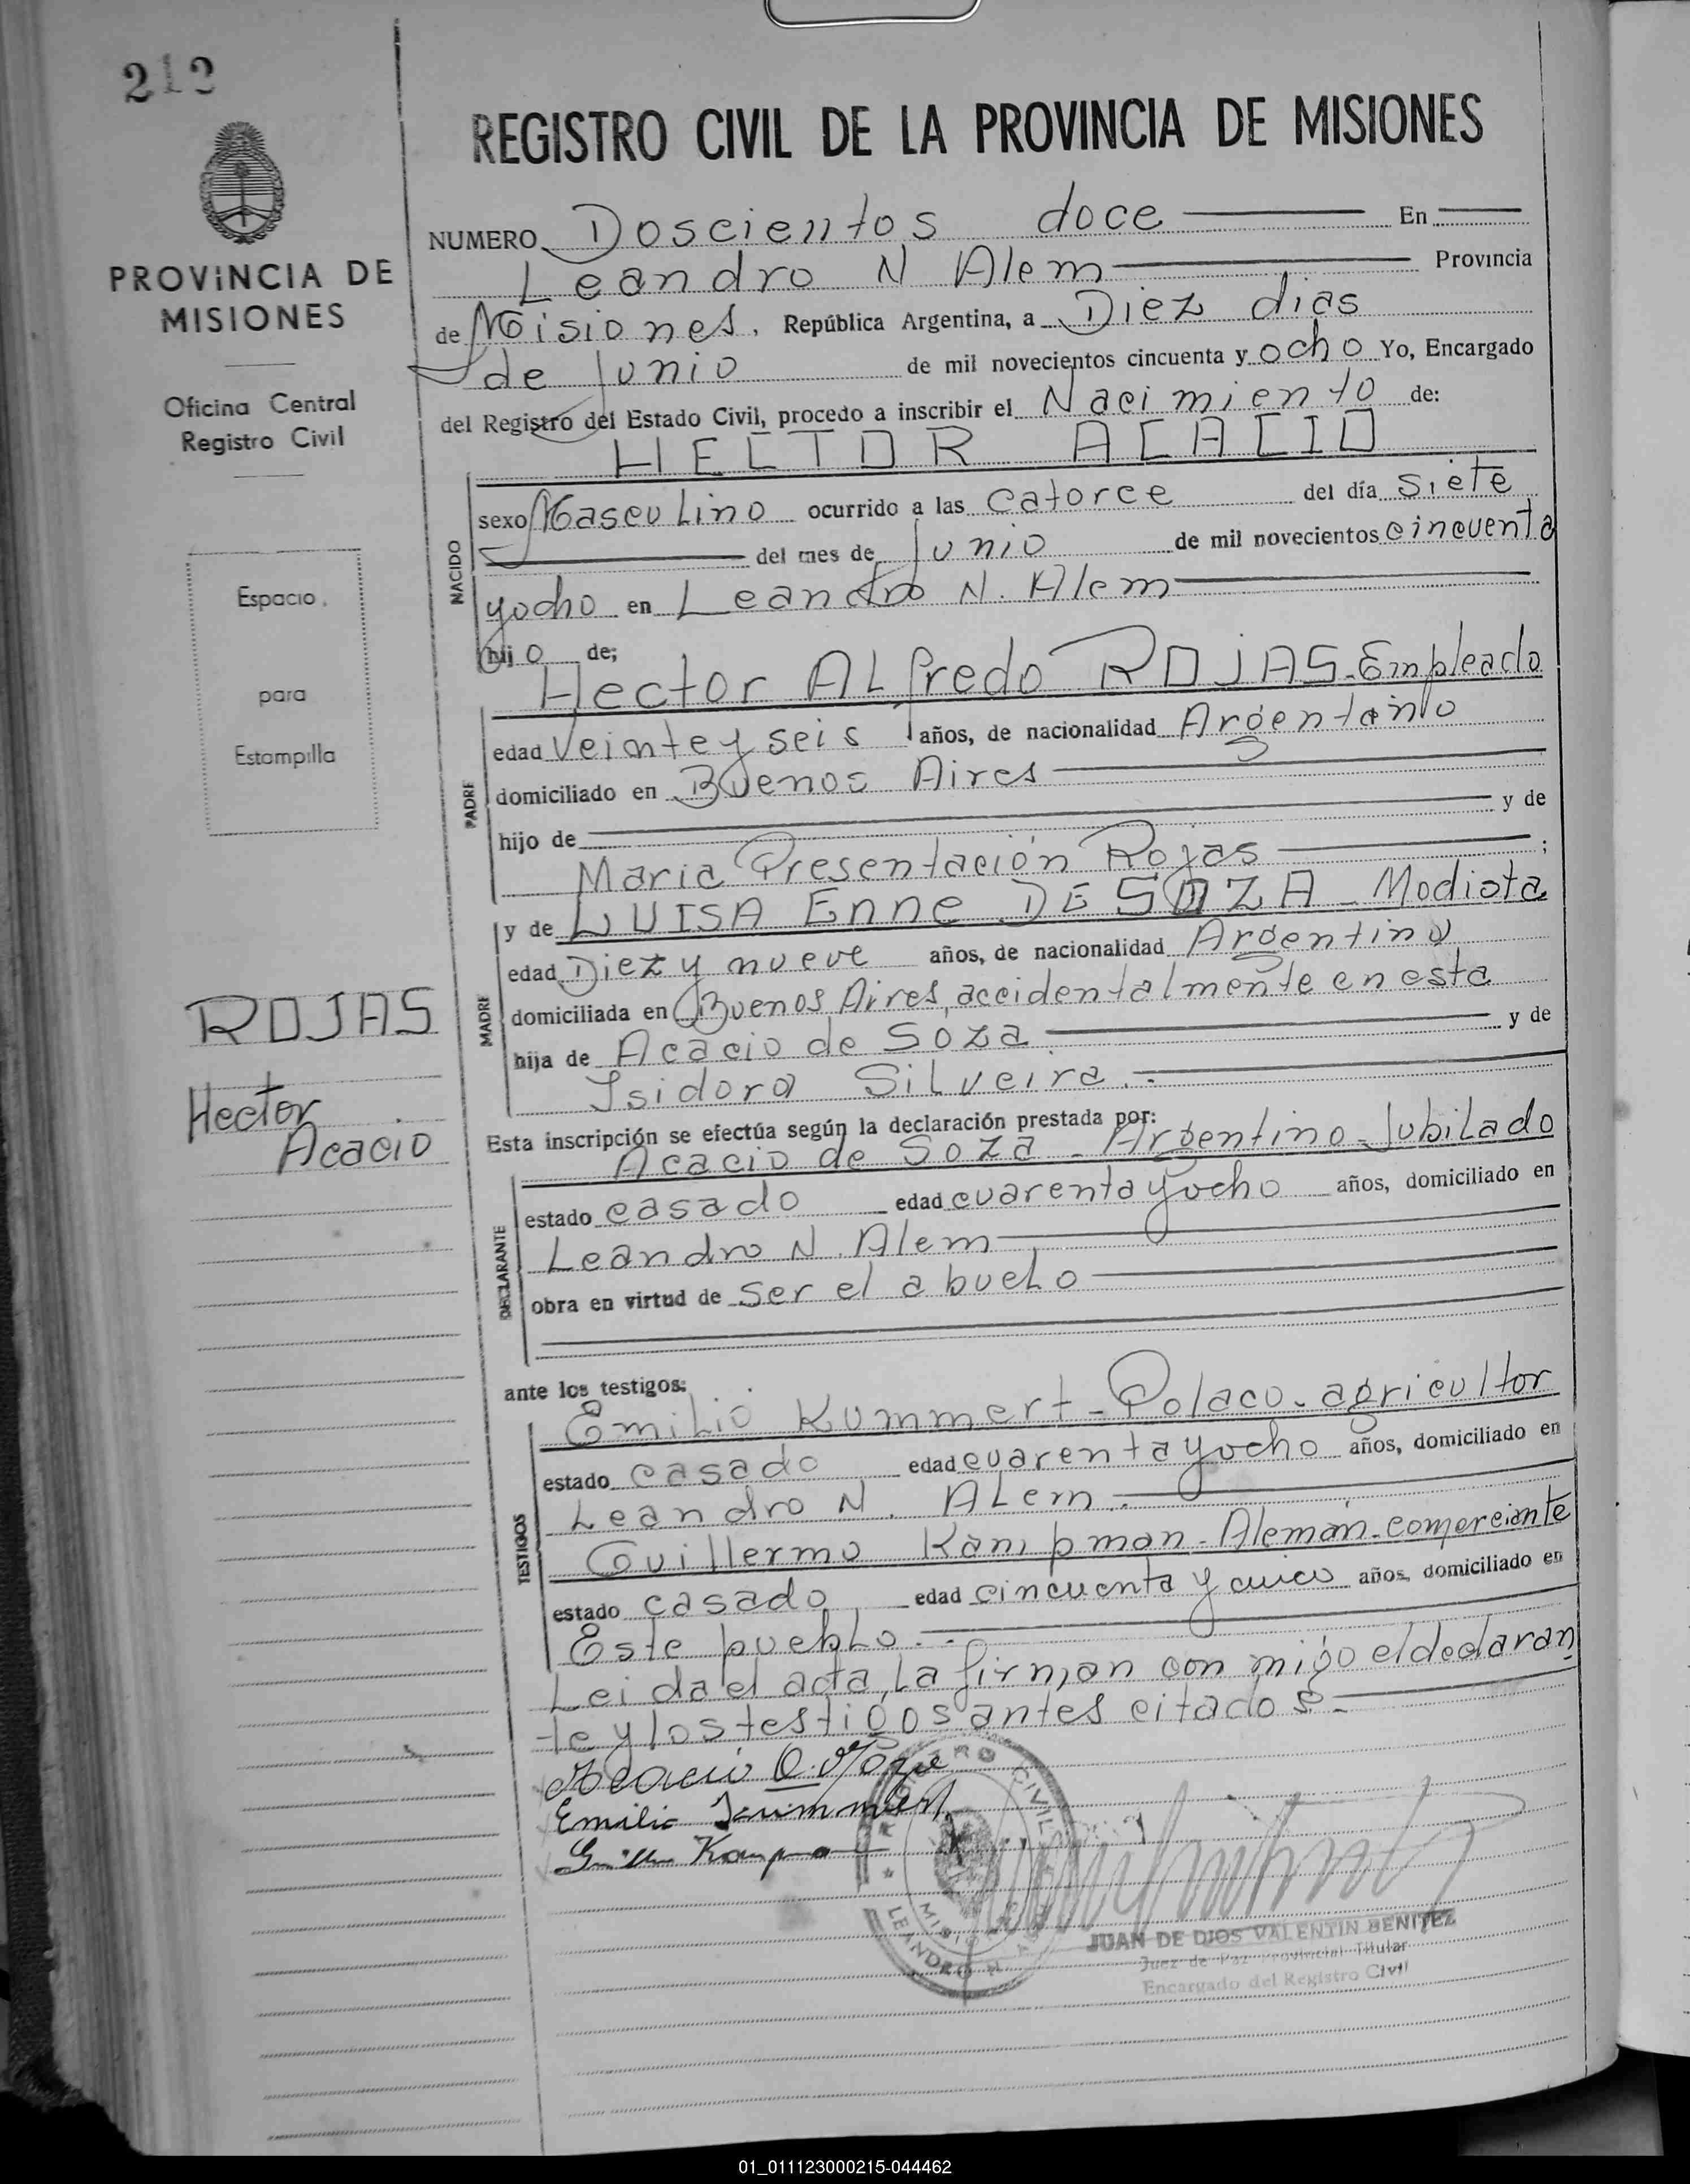 212
PROVINCIA DE
MISIONES
Oficina Central
Registro Civil
Espacio
para
Estampilla
ROJAS
Hector
Acacio
REGISTRO CIVIL DE LA PROVINCIA DE MISIONES
NUMERO Doscientos doce En
Leandro N Alem Provincia
de Misiones, República Argentina, a Diez dias
de Junio de mil novecientos cincuenta y ocho Yo, Encargado
del Registro del Estado Civil, procedo a inscribir el Nacimiento de:
HECTOR ACACIO
NACIDO
sexo Masculino ocurrido a las catorce del día siete
del mes de Junio de mil novecientos cincuenta
yocho en Leandro N. Alem
hijo de;
Hector ALfredo ROJAS-Empleado
PADRE
edad Veinte y seis años, de nacionalidad Argentino
domiciliado en Buenos Aires
hijo de y de
Maria Presentación Rojas ;
y de LUISA Enne DE SOZA - Modista
MADRE
edad Diez y nueve años, de nacionalidad Argentina
domiciliada en Buenos Aires, accidentalmente en esta
hija de Acacio de Soza y de
Isidora SiLveira.-
Esta inscripción se efectúa según la declaración prestada por:
Acacio de Soza - Argentino - JubiLado
DECLARANTE
estado casado edad cuarenta yocho años, domiciliado en
Leandro N. Alem
obra en virtud de ser el abueLo
ante los testigos:
TESTIGOS
EmiLio Kummert - Polaco - agricultor
estado casado edad cuarenta yocho años, domiciliado en
Leandro N. ALem.-
Guillermo Kampman - Alemán - comerciante
estado casado edad cincuenta y cinco años, domiciliado en
Este puebLo.-
Leida el acta, La firman con migo el declaran
te y los testigos antes citados-
Acacio
Emilio Kummert
REGISTRO CIVIL
MISIONES
LEANDRO N.
JUAN DE DIOS VALENTIN BENITEZ
Juez de Paz Provincial Titular
Encargado del Registro Civil
01_011123000215-044462